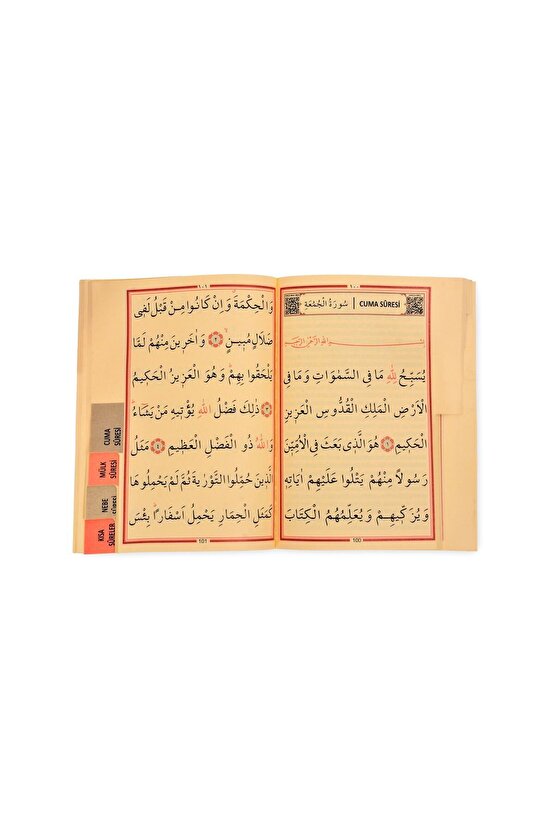 ١٠٠
سُورَةُ الْجُمُعَةِ | CUMA SÛRESİ
بِسْمِ اللهِ الرَّحْمٰنِ الرَّحِيمِ
يُسَبِّحُ لِلّٰهِ مَا فِى السَّمٰوَاتِ وَمَا فِى
الْاَرْضِ الْمَلِكِ الْقُدُّوسِ الْعَزِيزِ
الْحَكِيمِ ١ هُوَ الَّذِى بَعَثَ فِى الْاُمِّيّ۪نَ
رَسُولًا مِنْهُمْ يَتْلُوا عَلَيْهِمْ اٰيَاتِهِ
وَيُزَكِّيهِمْ وَيُعَلِّمُهُمُ الْكِتَابَ
100
١٠١
وَالْحِكْمَةَ وَاِنْ كَانُوا مِنْ قَبْلُ لَفِى
ضَلَالٍ مُبِينٍ ٢ وَاٰخَرِينَ مِنْهُمْ لَمَّا
يَلْحَقُوا بِهِمْ وَهُوَ الْعَزِيزُ الْحَكِيمُ
٣ ذٰلِكَ فَضْلُ اللهِ يُؤْتِيهِ مَنْ يَشَاءُ
وَاللهُ ذُو الْفَضْلِ الْعَظِيمِ ٤ مَثَلُ
الَّذِينَ حُمِّلُوا التَّوْرٰيةَ ثُمَّ لَمْ يَحْمِلُوهَا
كَمَثَلِ الْحِمَارِ يَحْمِلُ اَسْفَارًا بِئْسَ
101
CUMA
SÛRESİ
MÜLK
SÛRESİ
NEBE
KISA
SÛRELER